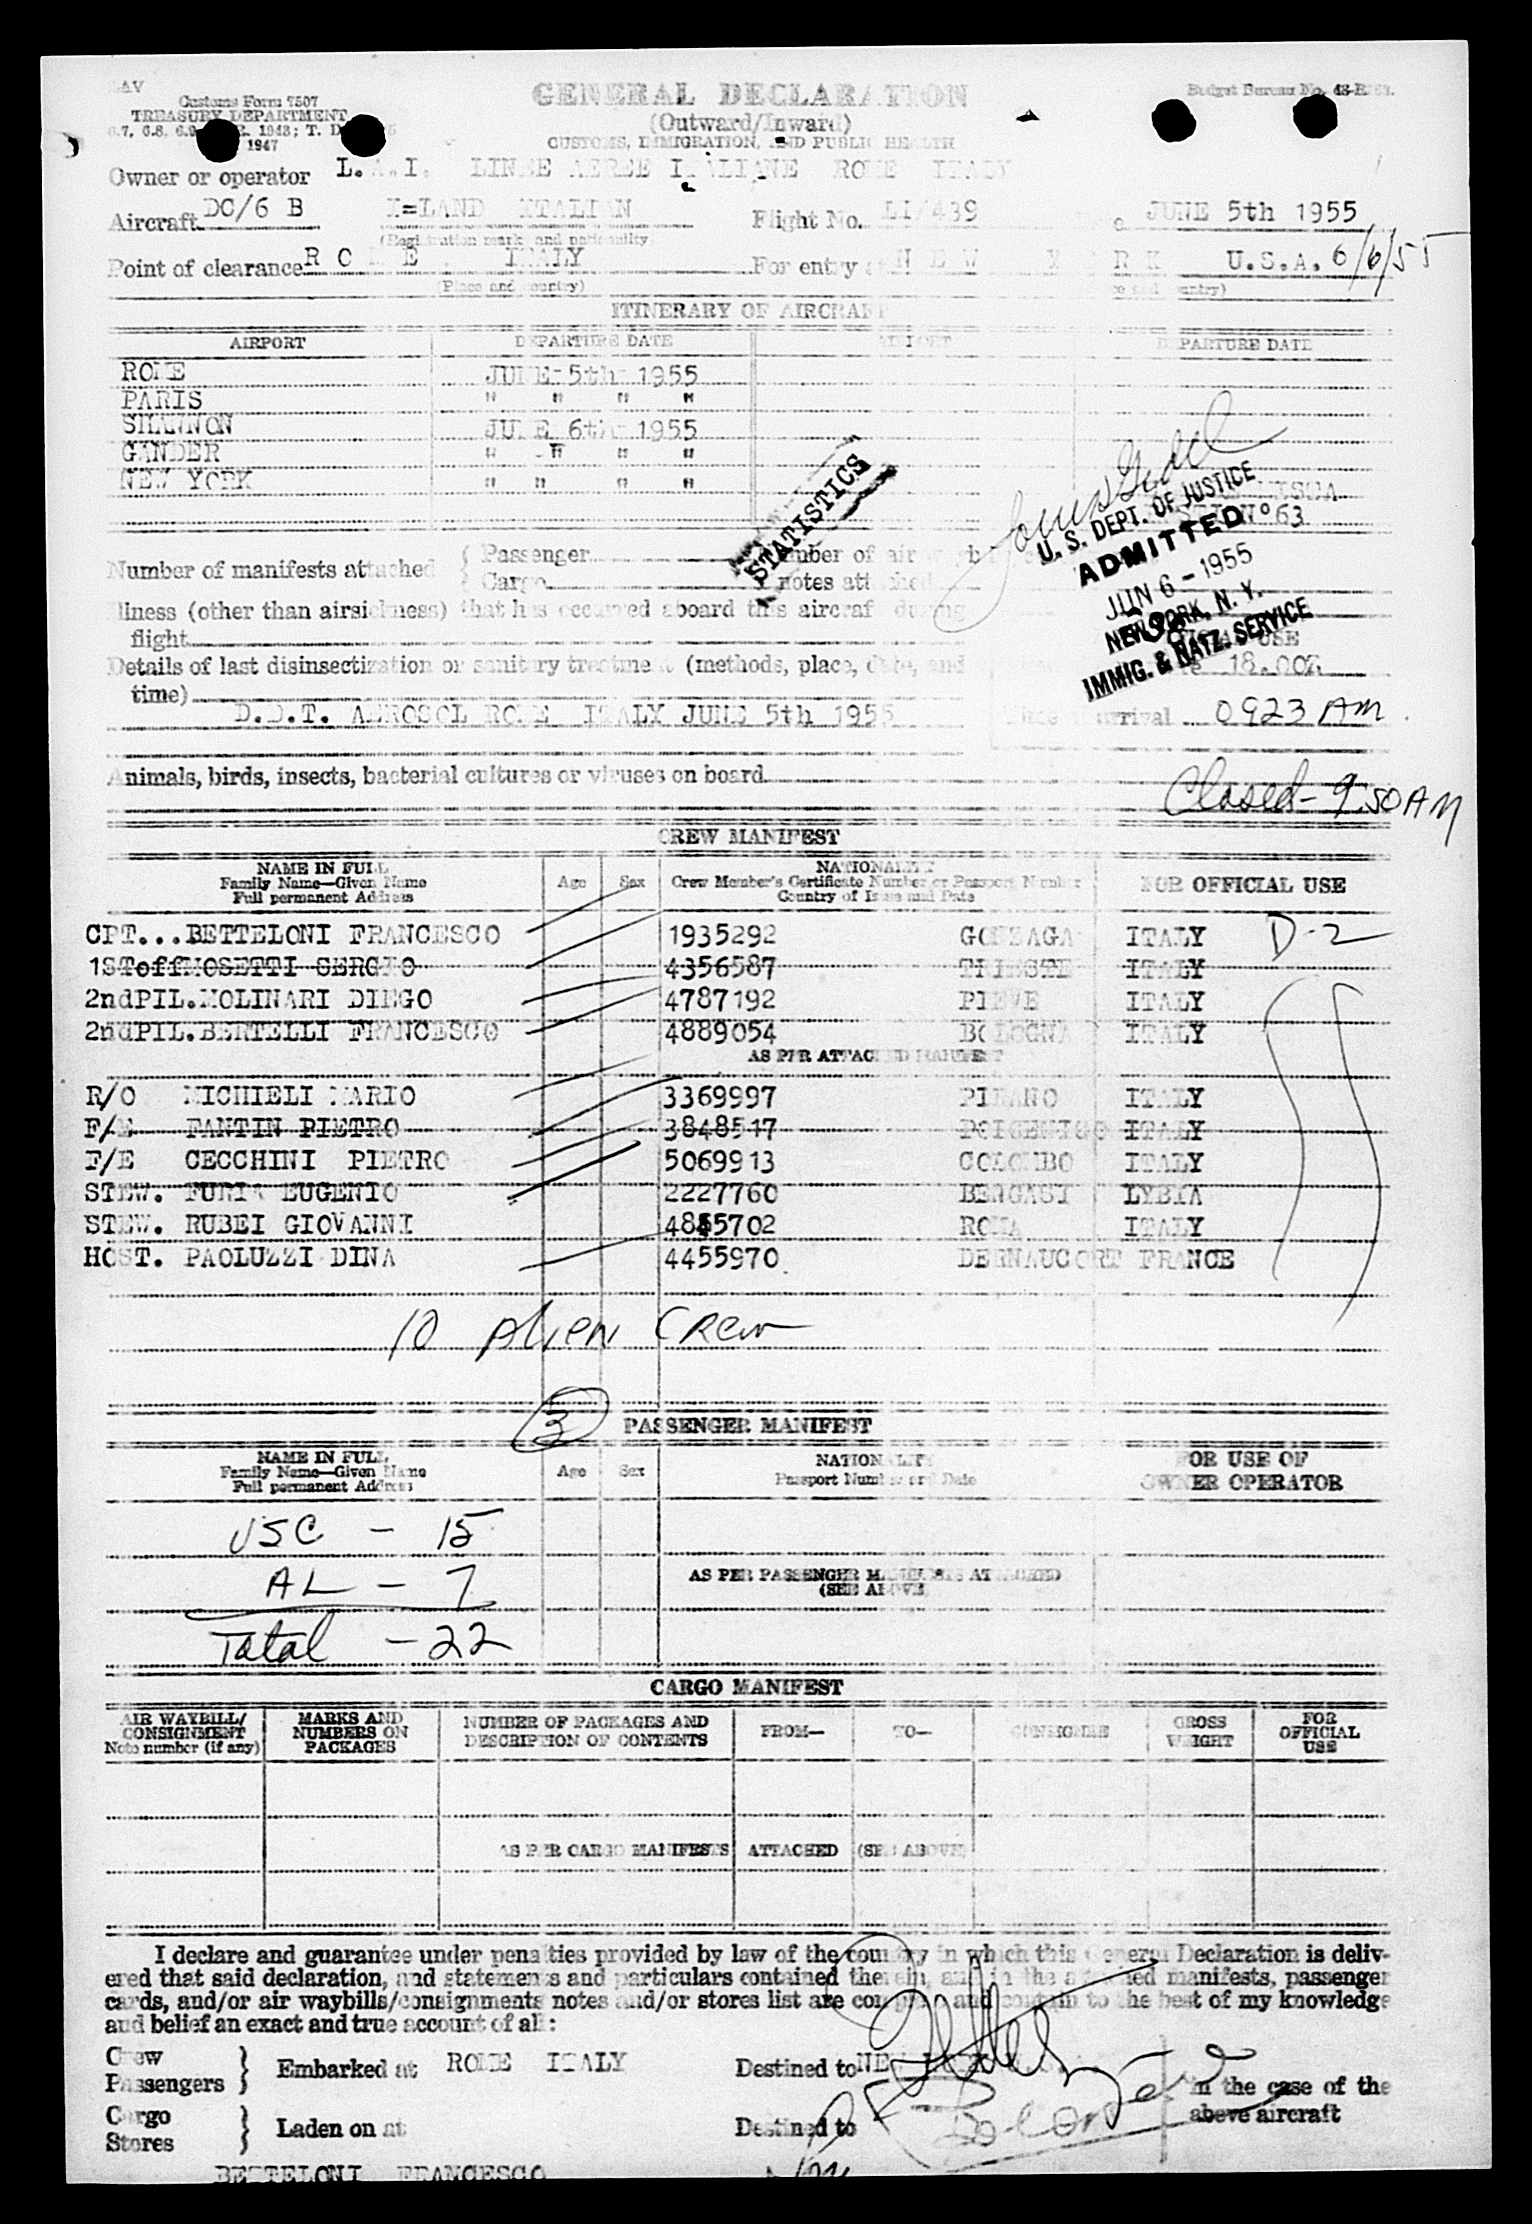 Customs Form 7507
TREASURY DEPARTMENT
1947
GENERAL DECLARATION
(Outward/Inward)
CUSTOMS, IMMIGRATION, AND PUBLIC HEALTH
Owner or operator L.A.I. LINEE AEREE ITALIANE ROME ITALY
Aircraft DC/6 B I=LAND ITALIAN Flight No. LI/439 JUNE 5th 1955
(Registration mark and nationality)
Point of clearance ROME ITALY For entry at NEW YORK U.S.A. 6/6/55
(Place and country)
ITINERARY OF AIRCRAFT
AIRPORT DEPARTURE DATE AIRPORT DEPARTURE DATE
ROME JUNE 5th 1955
PARIS " " " "
SHANNON JUNE 6th 1955
GANDER " " " "
NEW YORK " " " "
STATISTICS
U. S. DEPT. OF JUSTICE
ADMITTED
JUN 6 - 1955
NEW YORK, N. Y.
IMMIG. & NATZ. SERVICE
N° 63
Number of manifests attached { Passenger
Cargo
Illness (other than airsickness) that has occurred aboard this aircraft during
flight
Details of last disinsectization or sanitary treatment (methods, place, date, and
time)
18.00Z
D.D.T. AEROSOL ROME ITALY JUNE 5th 1955
arrival 0923 AM
Animals, birds, insects, bacterial cultures or viruses on board
Closed - 9:50 AM
CREW MANIFEST
NAME IN FULL
Family Name—Given Name
Full permanent Address
Age Sex
NATIONALITY
Crew Member's Certificate Number or Passport Number
Country of Issue and Date
FOR OFFICIAL USE
CPT...BETTELONI FRANCESCO 1935292 GONZAGA ITALY D-2
1SToffMOSETTI SERGIO 4356587 TRIESTE ITALY
2ndPIL.MOLINARI DIEGO 4787192 PIEVE ITALY
2ndPIL.BERTELLI FRANCESCO 4889054 BOLOGNA ITALY
AS PER ATTACHED MANIFEST
R/O MICHIELI MARIO 3369997 PIRANO ITALY
F/E FANTIN PIETRO 3848517 ITALY
F/E CECCHINI PIETRO 5069913 COLOMBO ITALY
STEW. EUGENIO 2227760 BENGASI LYBIA
STEW. RUBEI GIOVANNI 4855702 ROMA ITALY
HOST. PAOLUZZI DINA 4455970 DERNAUCORT FRANCE
10 Alien Crew
3
PASSENGER MANIFEST
NAME IN FULL
Family Name—Given Name
Full permanent Address
Age Sex
NATIONALITY
Passport Number and Date
FOR USE OF
OWNER OPERATOR
USC - 15
AL - 7
AS PER PASSENGER MANIFESTS ATTACHED
(SEE ABOVE)
Total - 22
CARGO MANIFEST
AIR WAYBILL/
CONSIGNMENT
Note number (if any)
MARKS AND
NUMBERS ON
PACKAGES
NUMBER OF PACKAGES AND
DESCRIPTION OF CONTENTS
FROM— TO— CONSIGNEE
GROSS
WEIGHT
FOR
OFFICIAL
USE
AS PER CARGO MANIFESTS ATTACHED (SEE ABOVE)
I declare and guarantee under penalties provided by law of the country in which this General Declaration is deliv-
ered that said declaration, and statements and particulars contained therein, and in the attached manifests, passenger
cards, and/or air waybills/consignments notes and/or stores list are complete and contain to the best of my knowledge
and belief an exact and true account of all:
Crew
Passengers } Embarked at ROME ITALY Destined to NEW in the case of the
above aircraft
Cargo
Stores } Laden on at Destined to
BETTELONI FRANCESCO